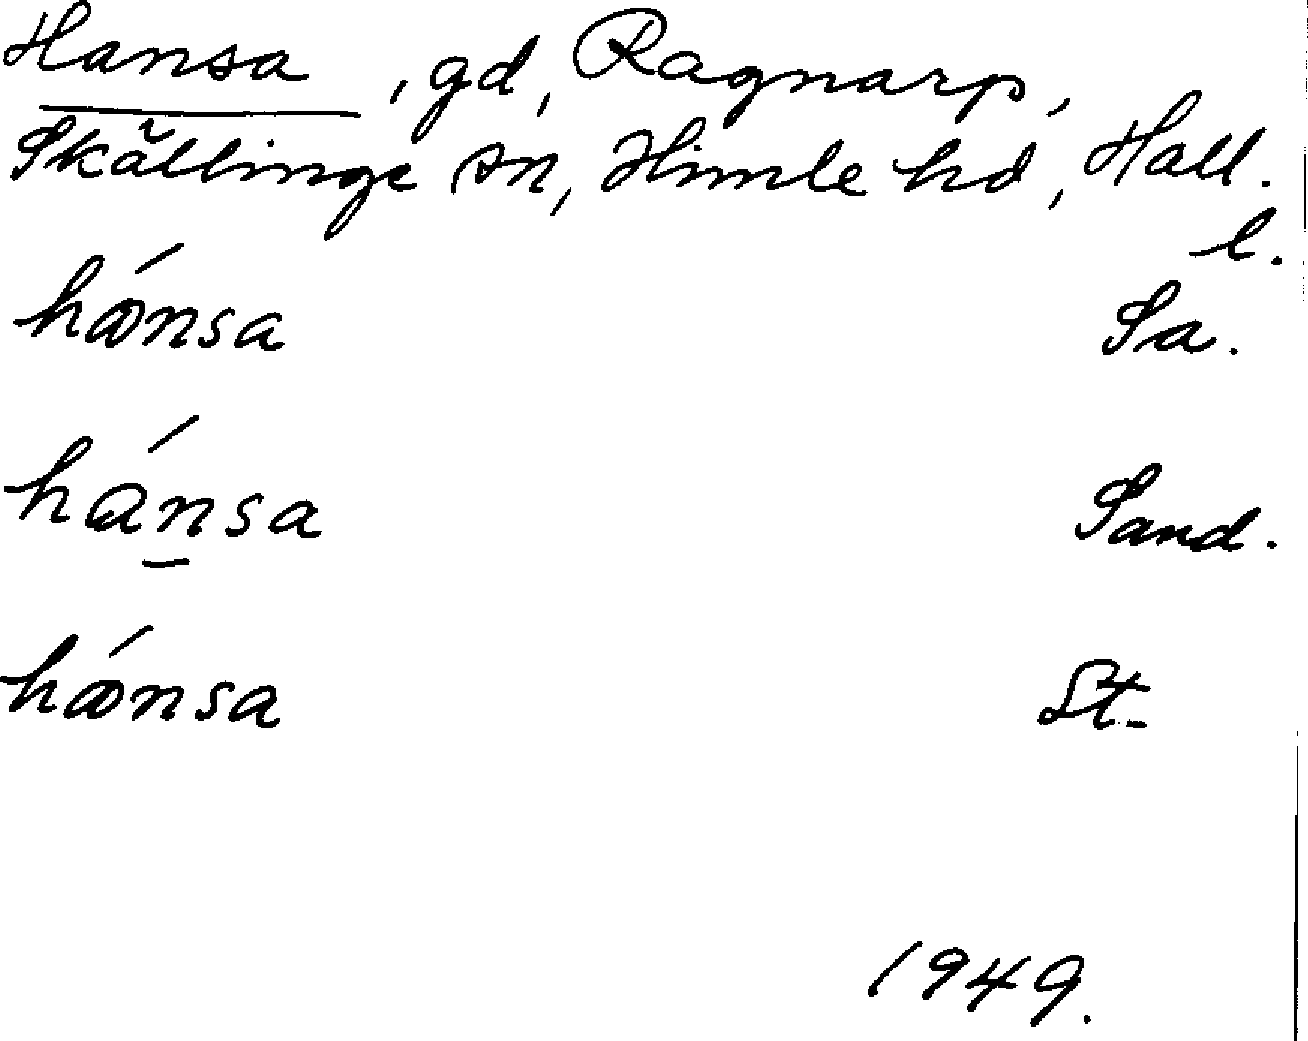 Hansa, gd, Ragnarp,
Skällinge sn, Himle hd, Hall.
l.
hánsa Sa.
hánsa Sand.
hánsa St.
1949.